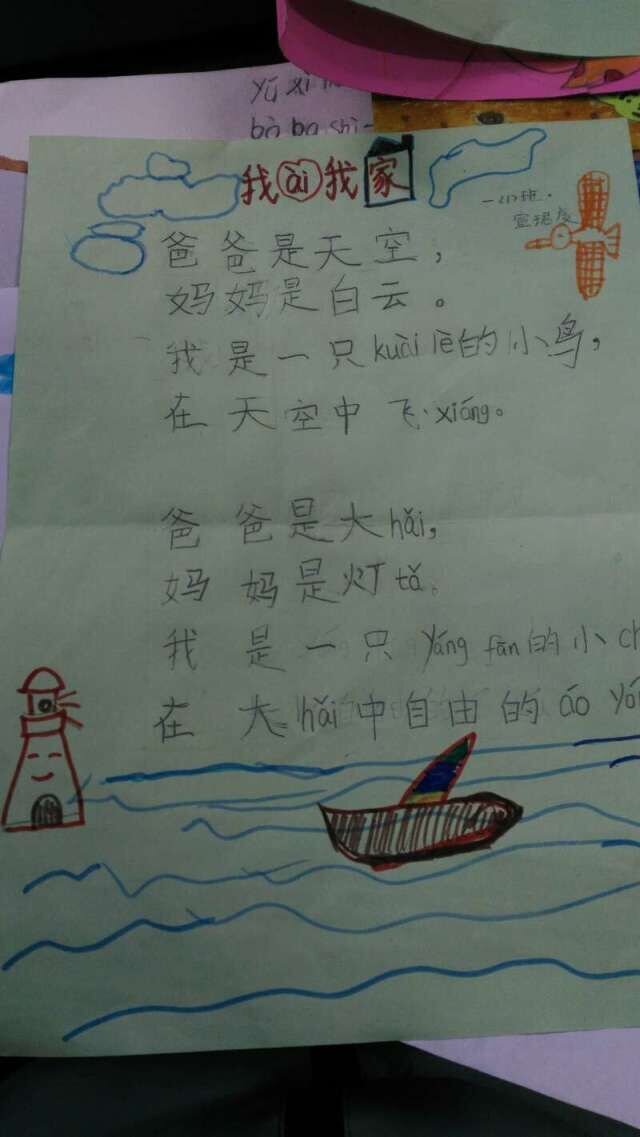 yǔ xì
bà ba shì
我ài我家
一(1)班.
爸爸是天空，
妈妈是白云。
我是一只kuài lè的小鸟，
在天空中飞xiáng。
爸爸是大hǎi，
妈妈是灯tǎ。
我是一只yáng fān的小ch
在大hǎi中自由的áo yóu